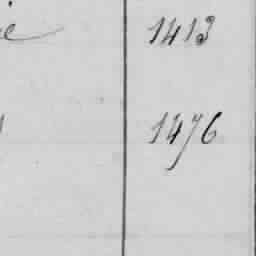 1413
1476